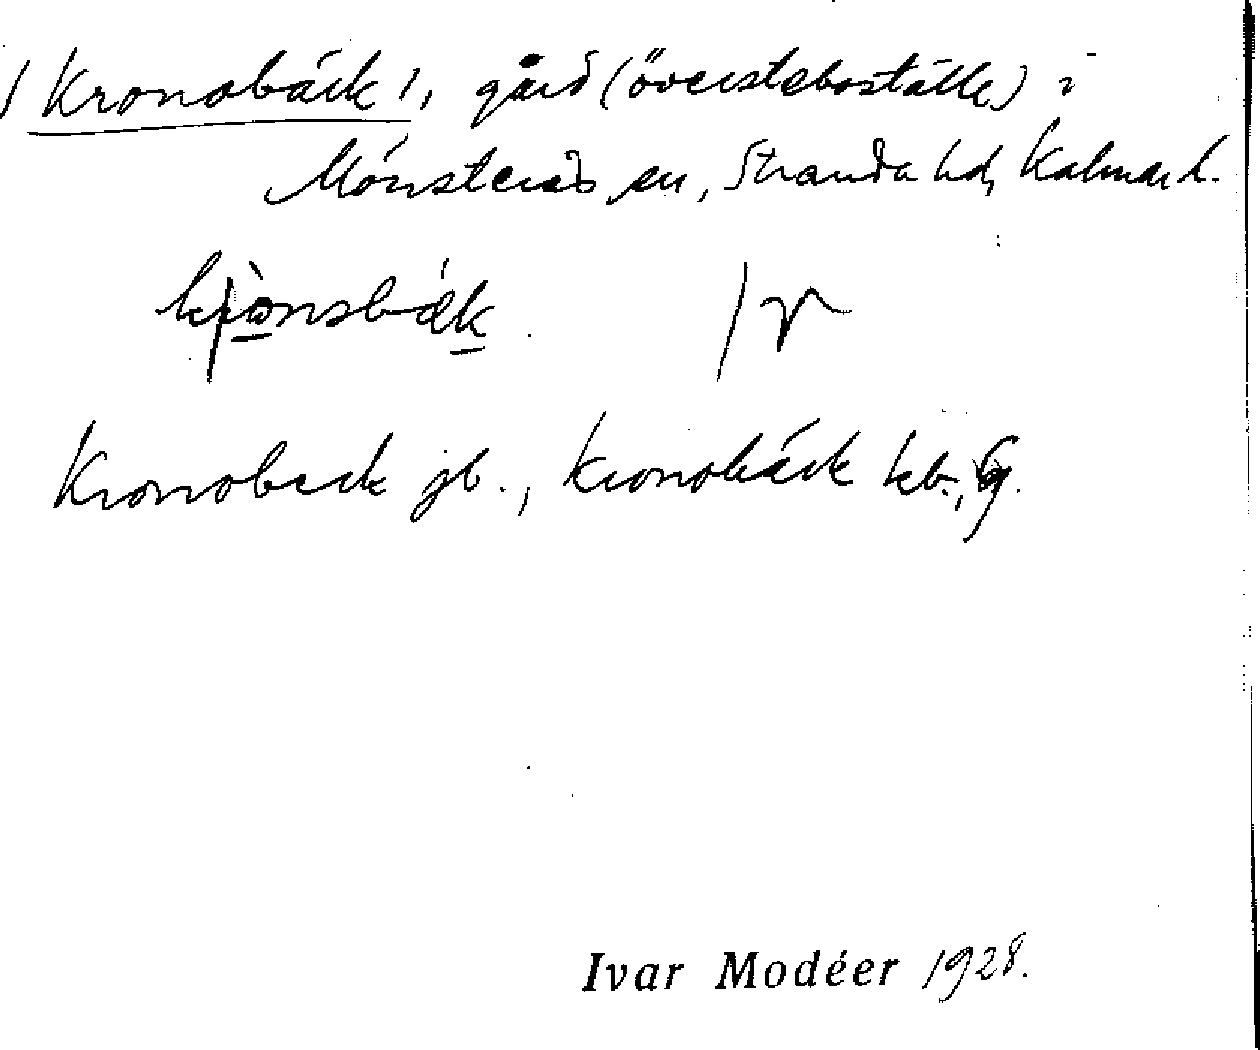 /Kronobäck/, gård (översteboställe) i
Mönsterås sn, Stranda hd, Kalmar l.
krònsbä́k. /r
Kronobeck jb., Kronobäck kb., G.
Ivar Modéer 1928.